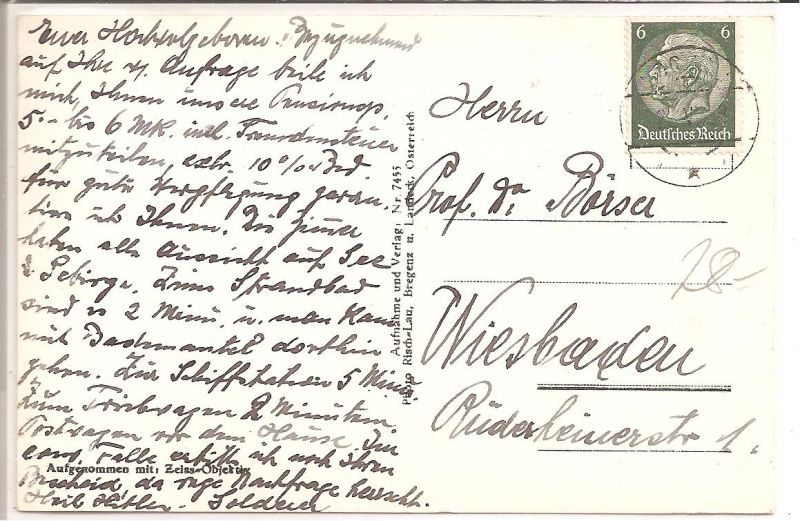 Euer Hochwolgeboren. Bezugnehmend
auf Ihre w. Anfrage beile ich
mich, Ihnen unsere Pensionspr.
5.- bis 6 MK. incl. Fremdensteuer
mitzuteilen, extr. 10% Bed.
für gute Verpflegung garan-
tiere ich Ihnen. Die Zimer
haben alle Aussicht auf See
u Gebirge. Zum Strandbad
sind es 2 Minu. u. man kann
mit Bademantel dorthin
gehen. Zur Schiffstation 5 Minu
zum Triebwagen 2 Minuten.
Postwagen vor dem Hause. Im
event. Falle erbitte ich noch Ihren
Bescheid, da rege Nachfrage herrscht.
Heil Hitler.
Aufgenommen mit Zeiss-Objektiv
Aufnahme und Verlag, Nr. 7455
Photo Risch-Lau, Bregenz u. Landeck, Österreich
6 6
Deutsches Reich
Herrn
Prof. Dr. Börser
Wiesbaden
Rüdesheimerstr 1.
28-